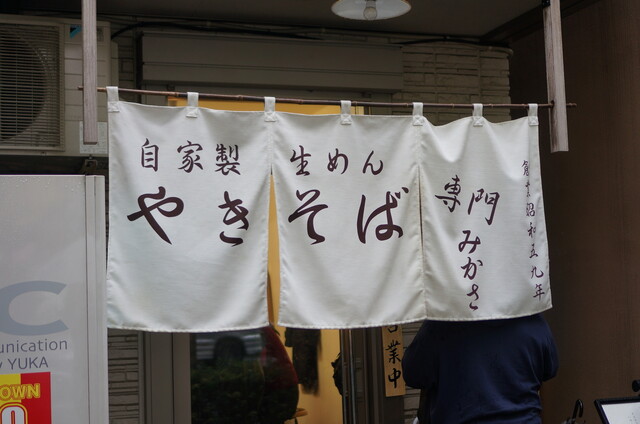 自家製 生めん
やきそば
専門
みかさ
創業昭和五九年
営業中
C
unication
YUKA
OWN